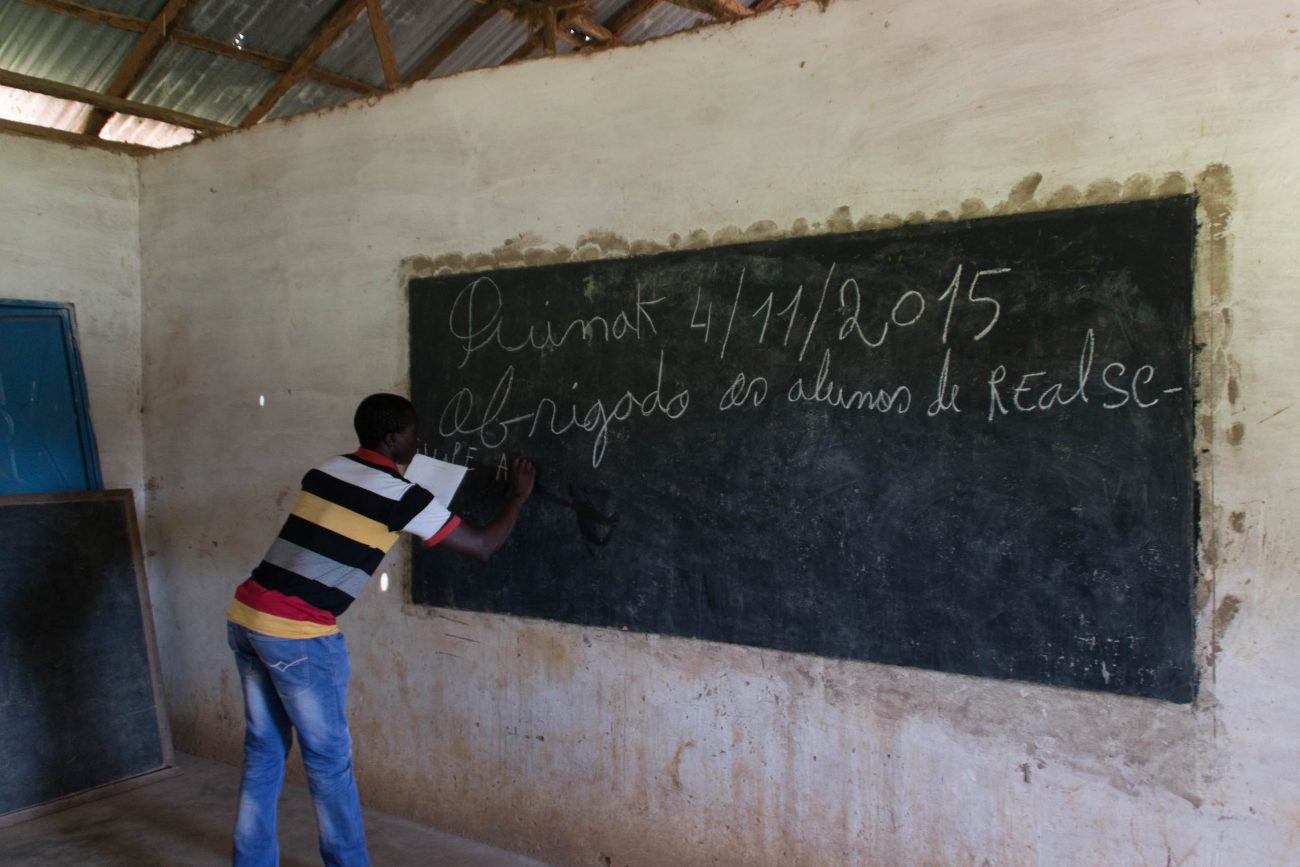 Quinak 4/11/2015
Obrigado os alunos de REalSC-
A